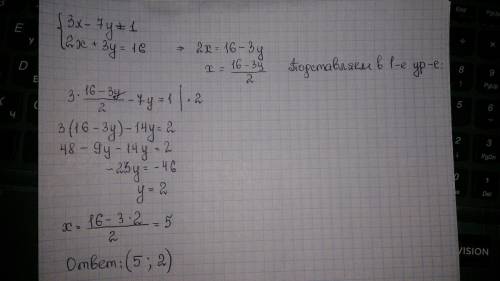 {3x - 7y = 1
{2x + 3y = 16 ⇒ 2x = 16 - 3y
x = (16 - 3y)/2 Подставляем в 1-е ур-е:
3 · (16 - 3y)/2 - 7y = 1 | · 2
3(16 - 3y) - 14y = 2
48 - 9y - 14y = 2
- 23y = -46
y = 2
x = (16 - 3·2)/2 = 5
Ответ: (5 ; 2)
VISION